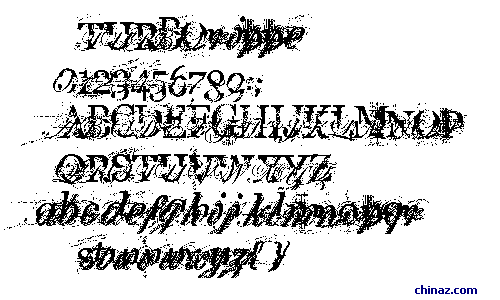 TURBOrippe
0123456789:;
ABCDEFGHIJKLMNOP
QRSTUVWXYZ
abcdefghijklmnopqr
stuvwxyz{}
chinaz.com